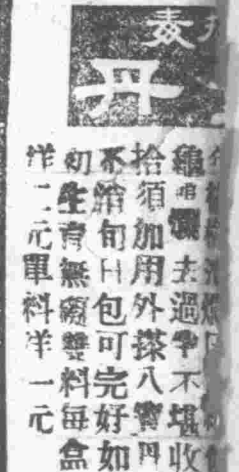 毒
丹
龜爛去過半不堪收
拾須加用外搽八寶丹
不消旬日包可完好如
初生育無礙雙料每盒
洋二元單料洋一元